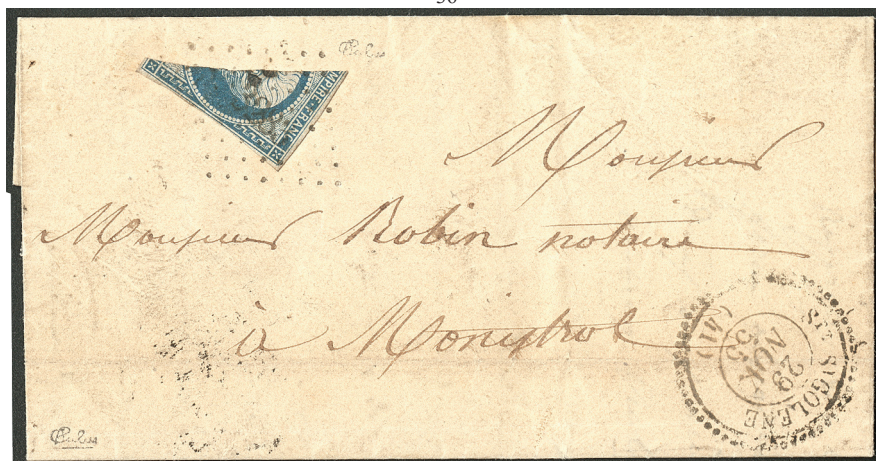 Calves
MPIRE·FRANC
Monsieur
Monsieur Robin notaire
à Monistrol
STE SIGOLENE
29
NOV
55
(41)
Calves